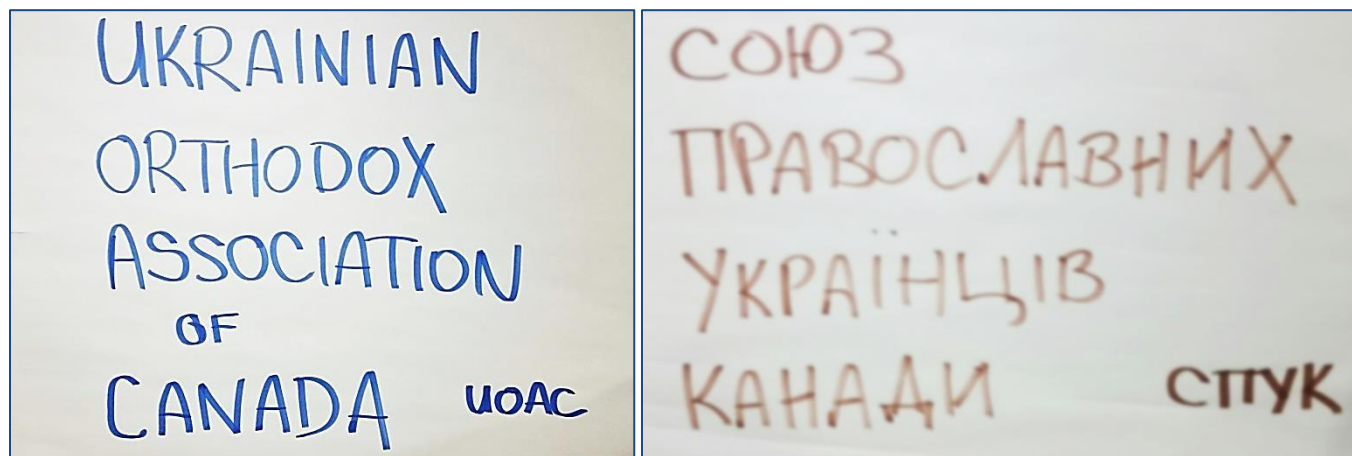 UKRAINIAN
ORTHODOX
ASSOCIATION
OF
CANADA UOAC
СОЮЗ
ПРАВОСЛАВНИХ
УКРАЇНЦІВ
КАНАДИ СПУК